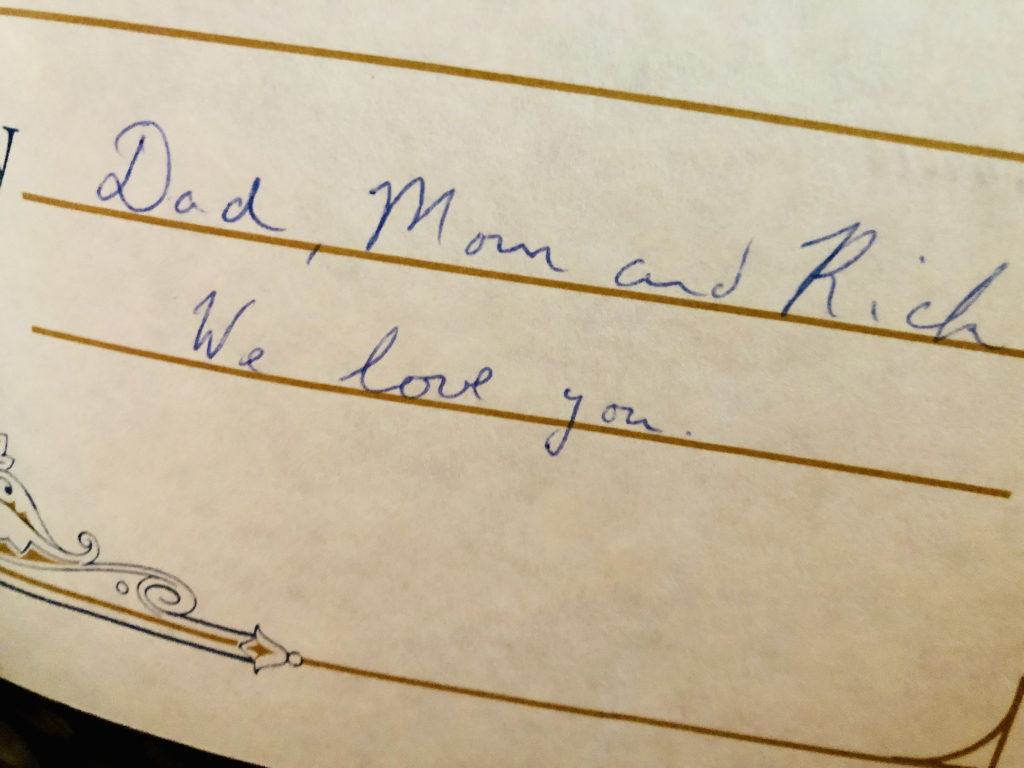 Dad, Mom and Rich
We love you.